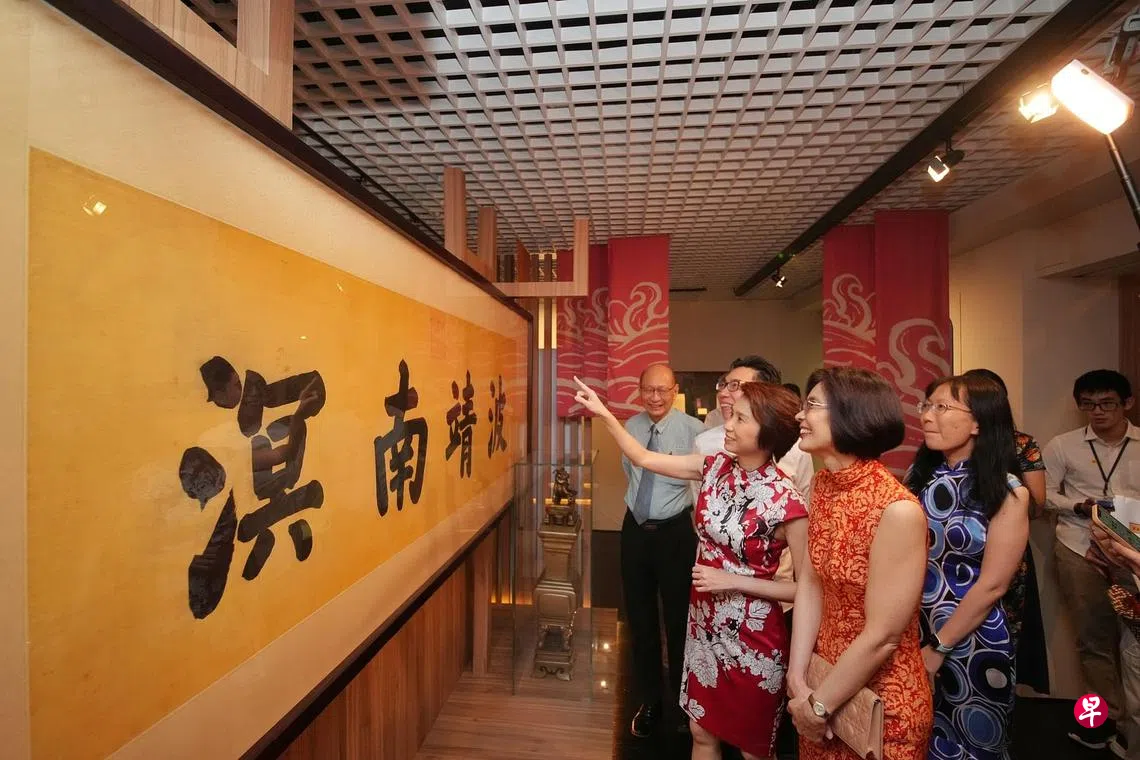 波靖南溟
早